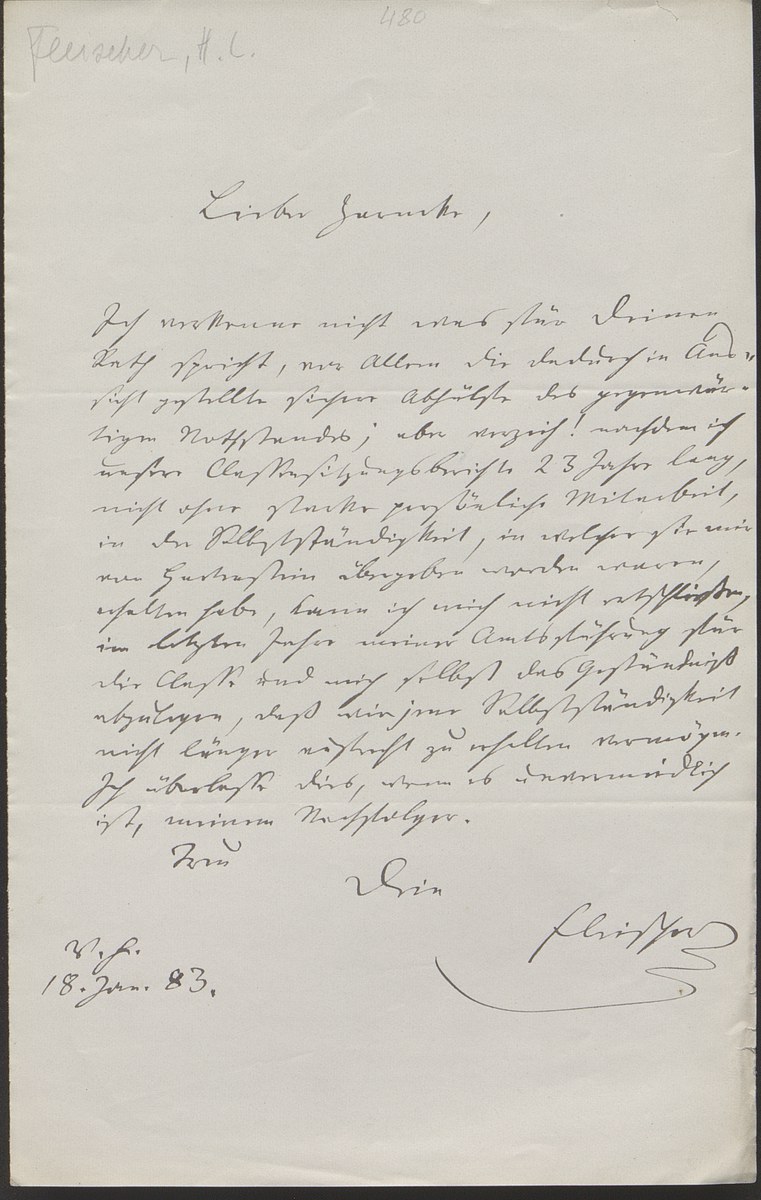 480
Fleischer, H. L.
Lieber Zarncke,
Ich verkenne nicht was für Deinen
Rath spricht, vor Allem die dadurch in Aus-
sicht gestellte sichere Abhülfe des gegenwär-
tigen Nothstandes; aber verzeih! nachdem ich
unsere Classensitzungsberichte 23 Jahre lang,
nicht ohne starke persönliche Mitarbeit,
in der Selbstständigkeit, in welcher sie mir
von Hartenstein übergeben worden waren,
erhalten habe, kann ich mich nicht entschließen,
im letzten Jahre meiner Amtsführung für
die Classe und mich selbst das Geständniß
abzulegen, daß wir jene Selbstständigkeit
nicht länger aufrecht zu erhalten vermögen.
Ich überlasse dies, wenn es unvermeidlich
ist, meinem Nachfolger.
Treu
Dein
Fleischer
V. H.
18. Jan. 83.